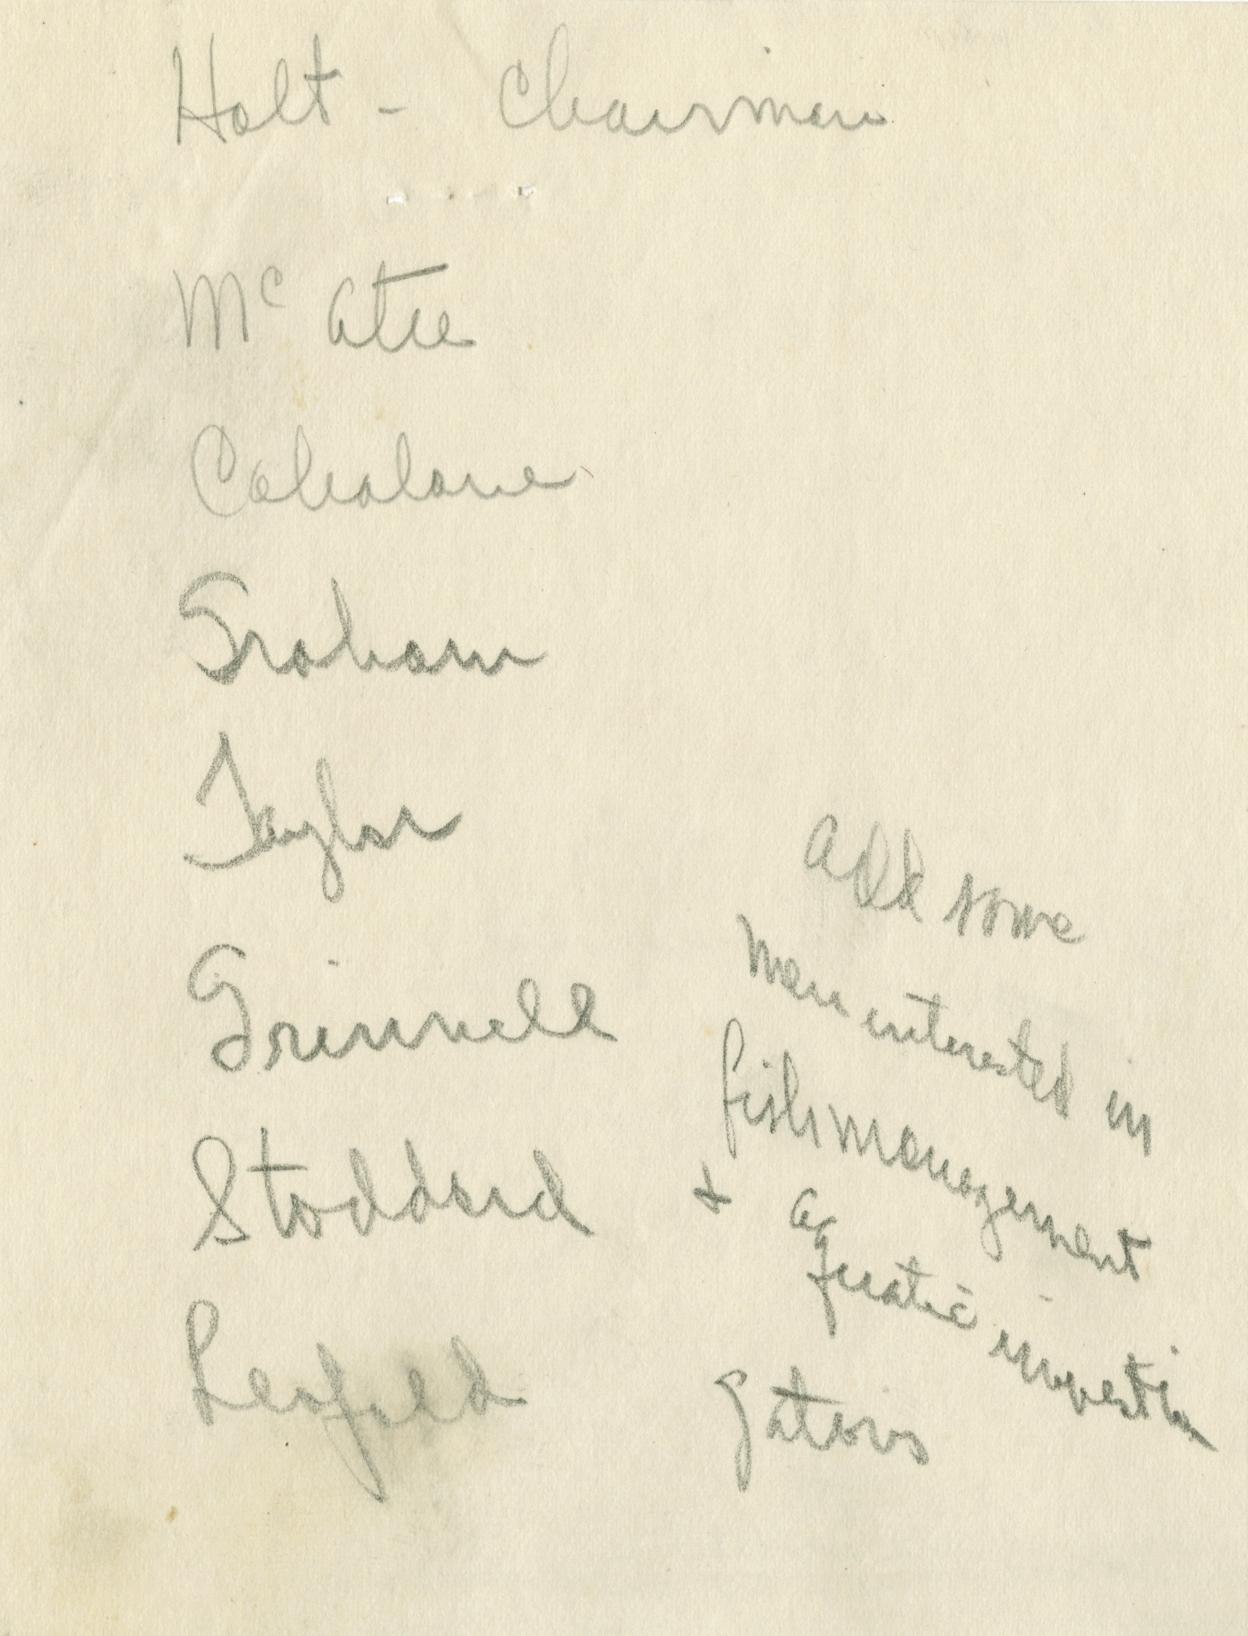 Holt - Chairman
McAtee
Cahalane
Graham
Taylor
Grinnell
Stoddard
Leopold
add some
men interested in
fish management
& aquatic investi
gations